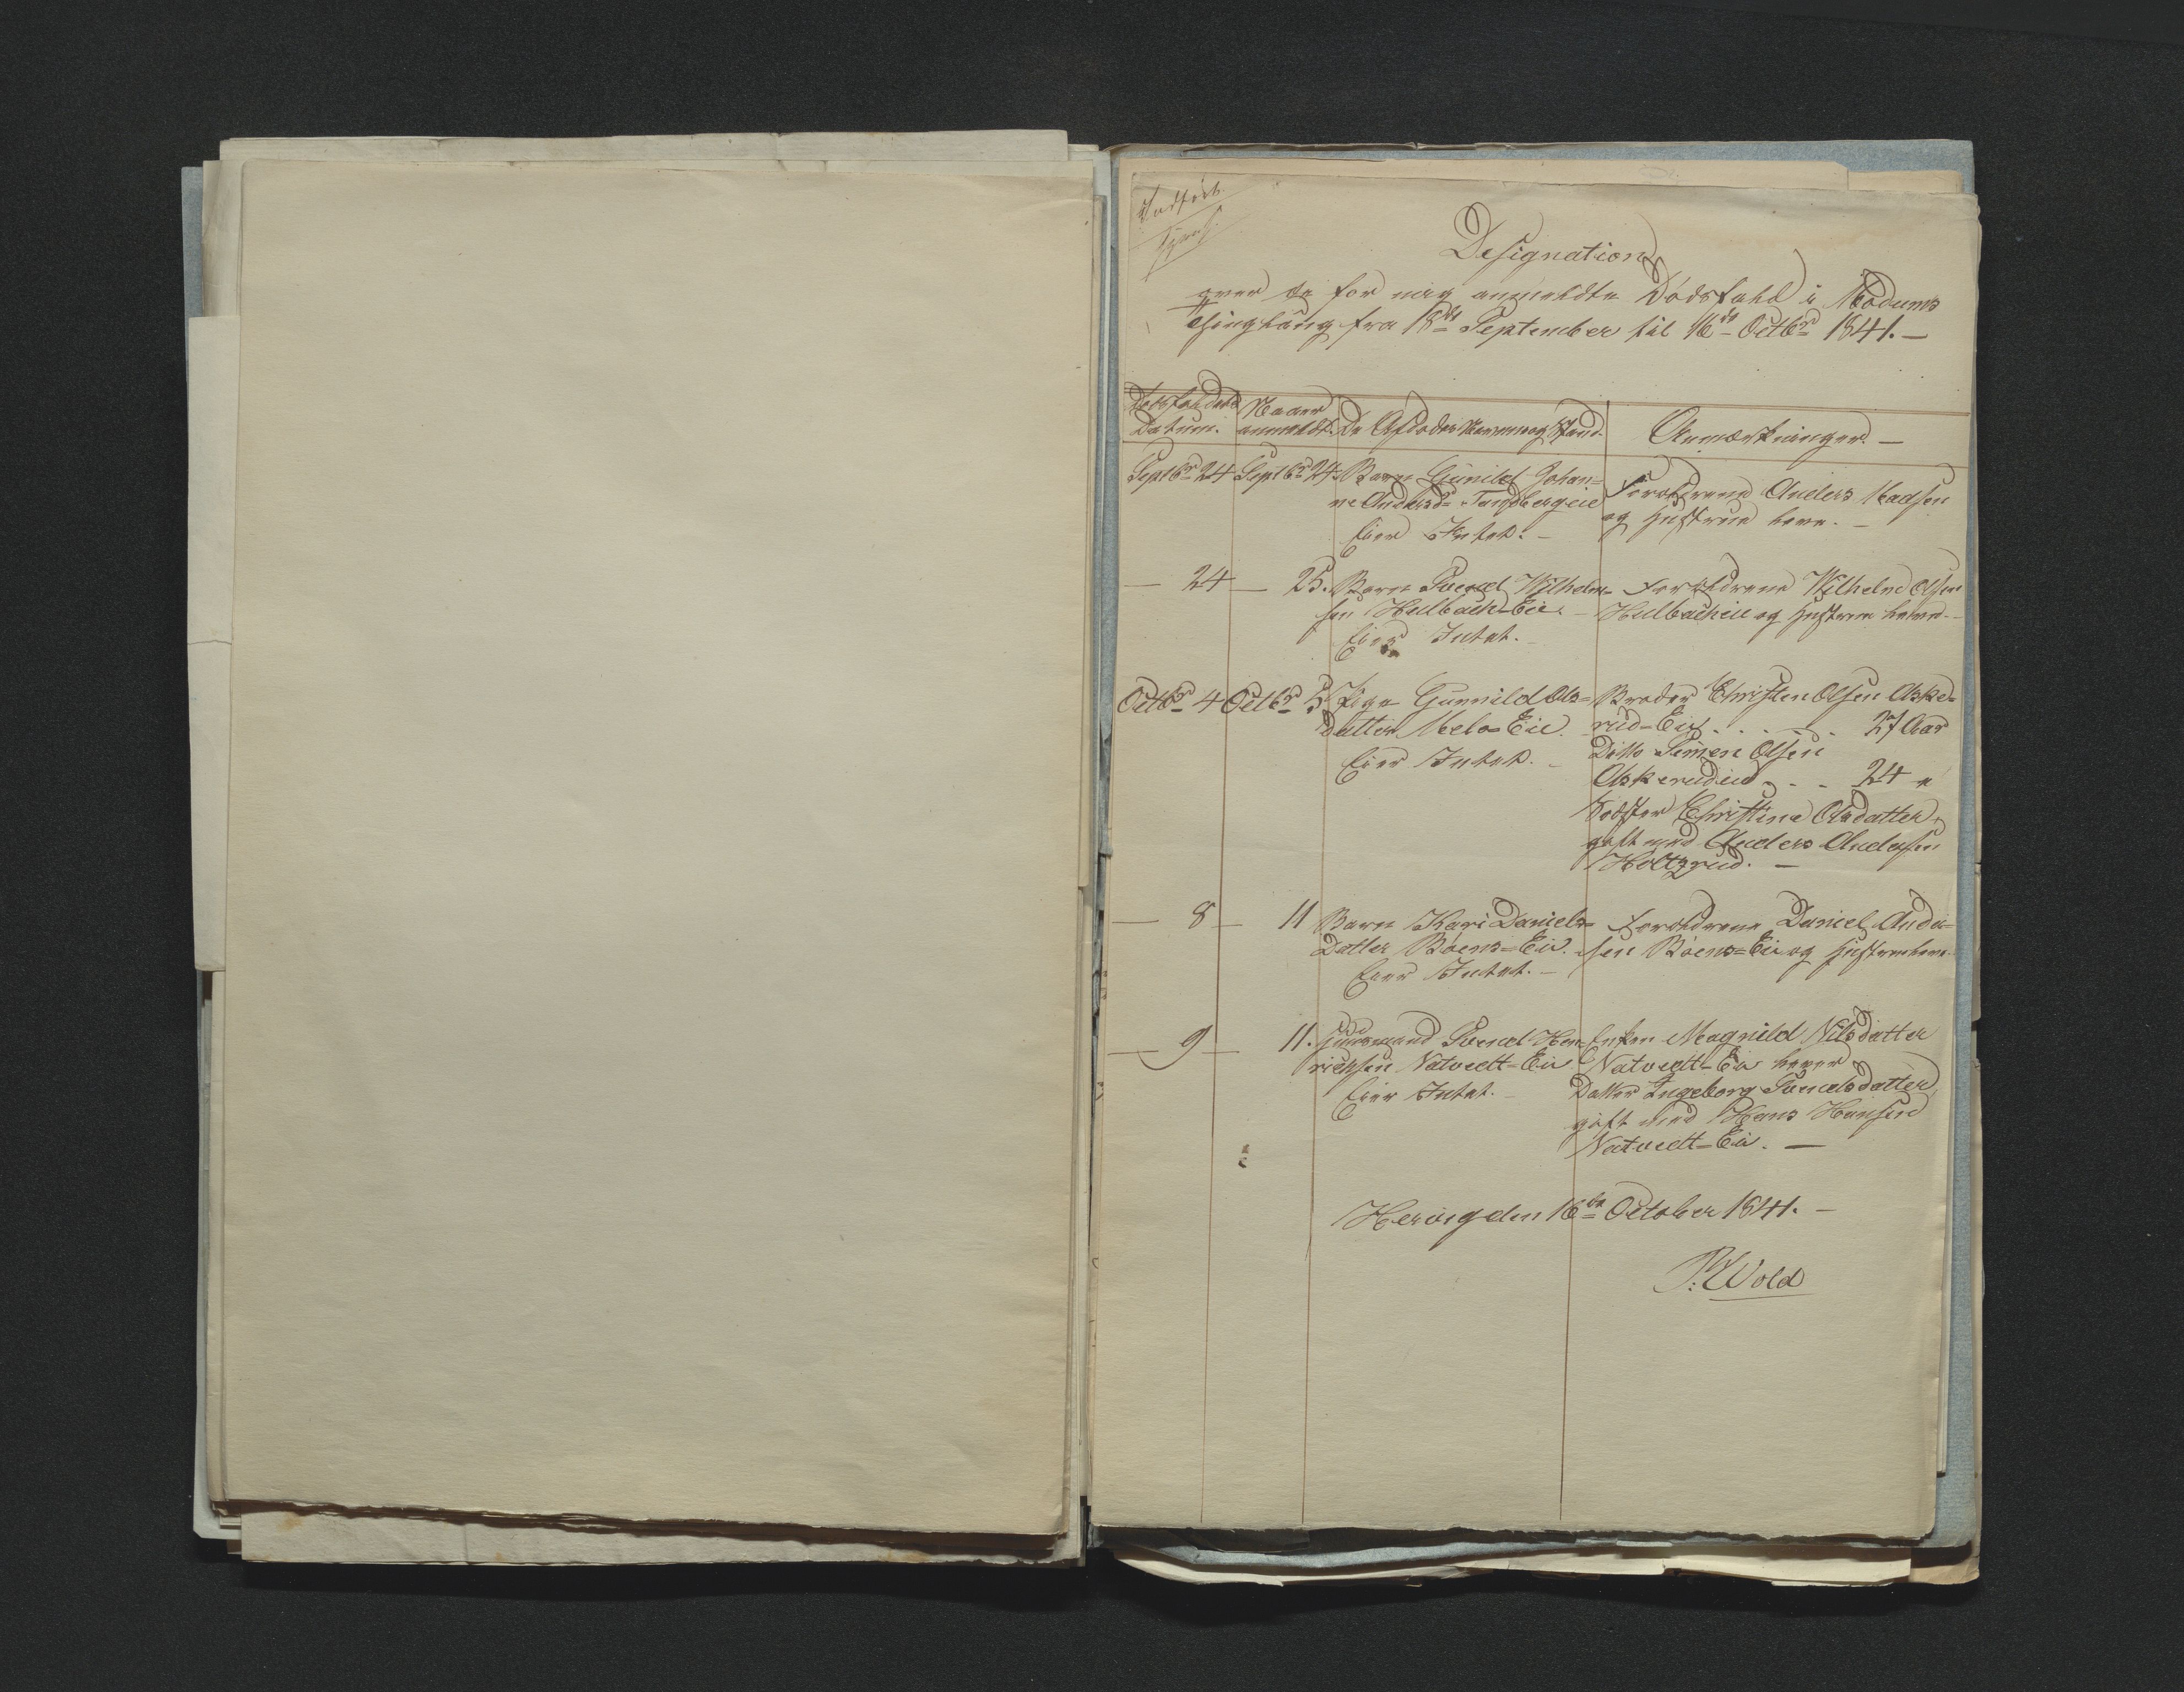 Indført
Designation
over de for mig anmeldte Dødsfald i Modums
Thinglaug fra 18de September til 16de Octbr 1841. —
Dødsfaldets Datum.
Naar anmeldt.
De Afdødes Navn og Stand.
Anmærkninger. —
Septbr 24 Septbr 24. Barn Gunild Johan=
ne Andersd= Tandbergeie
Eier Intet. —
Forældrene Anders Madsen
og Hustrue leve. —
— 24 — 25. Barn Svend Wilhelm=
sen Hulbach=Eie. —
Eier Intet. —
Forældrene Wilhelm Olsen
Hulbacheie og Hustrue leve. —
Octbr 4 Octbr 5. Pige Gunnild Ols=
datter Melo=Eie.
Eier Intet. —
Broder Christen Olsen Aske=
rud=Eie . . . . . 27 Aar
Ditto Simen Olsen
Askerudeie . . . 24 "
Søster Christine Olsdatter,
gift med Anders Andersen
Holtzrud. —
— 8 — 11 Barn Kari Daniels=
Datter Böens=Eie.
Eier Intet. —
Forældrene Daniel Ander=
sen Böens=Eie og Hustrue leve.
— 9 — 11. Huusmand Svend Hen=
richsen Natvedt=Eie
Eier Intet. —
Enken Magnild Nilsdatter
Natvedt=Eie lever
Datter Ingeborg Svendsdatter,
gift med Hans Hansen
Natvedt=Eie. —
Hervig den 16de October 1841. —
P. Wold